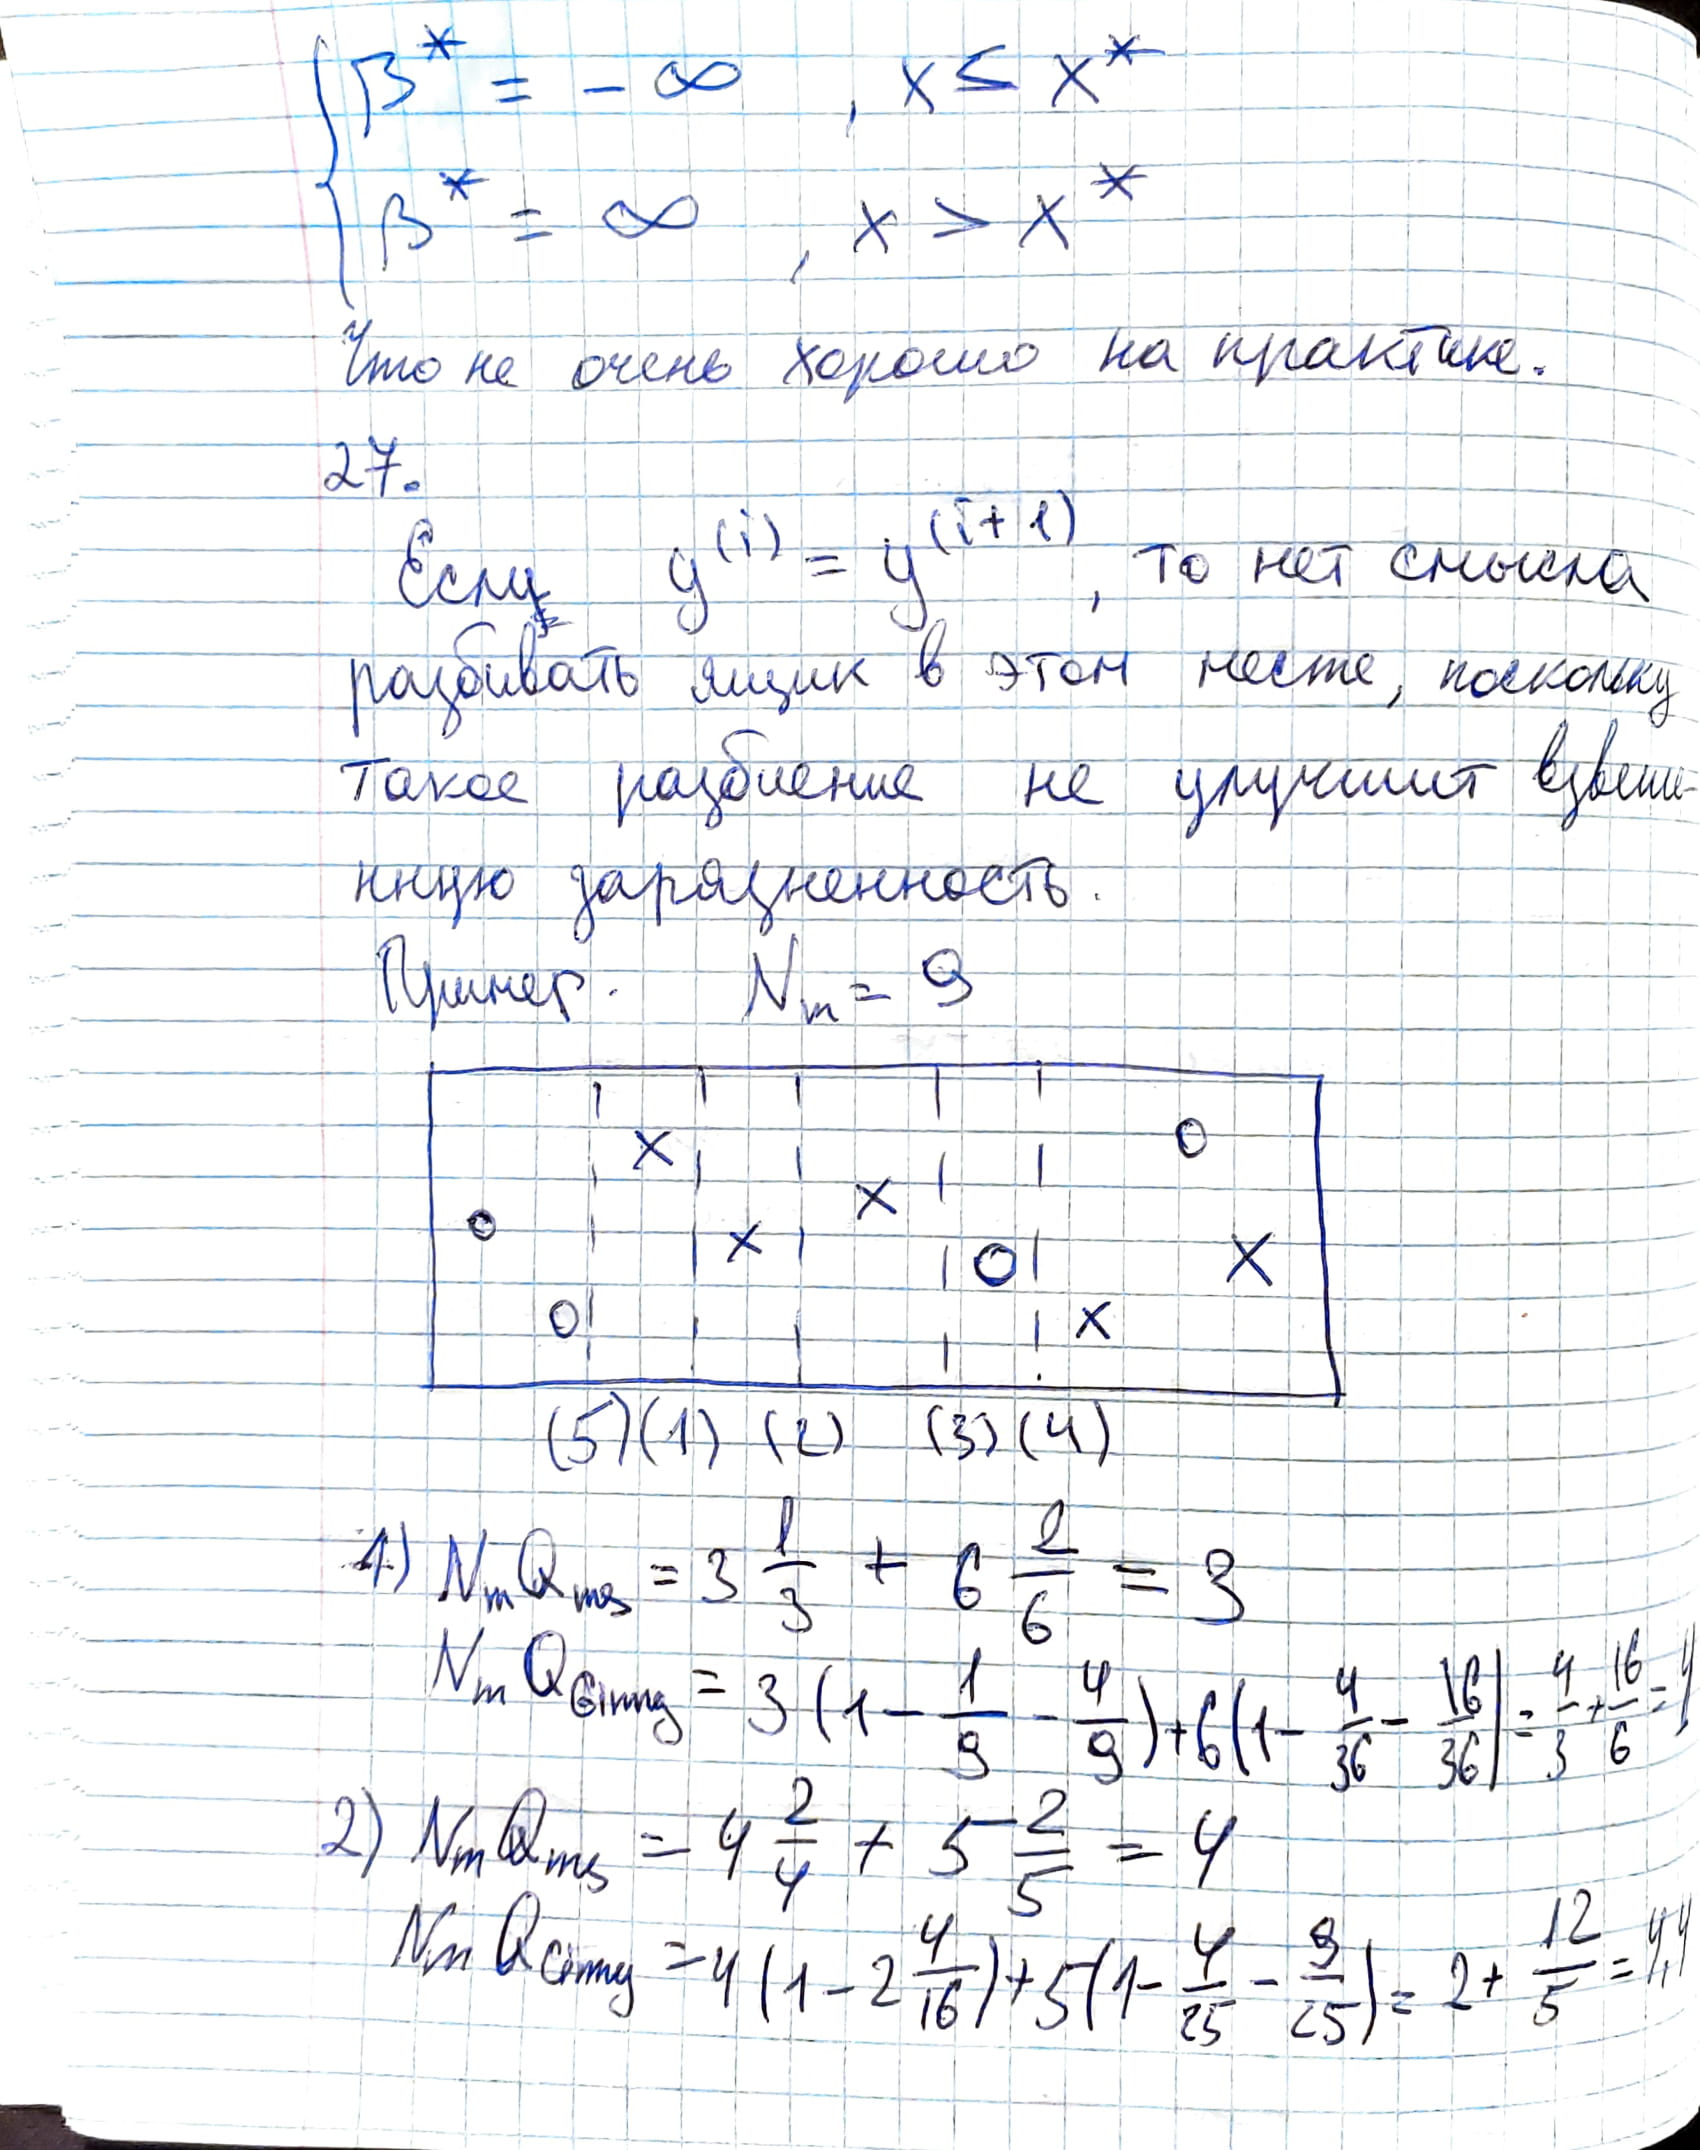 β* = - ∞ , x ≤ x*
β* = ∞ , x > x*
Что не очень хорошо на практике.
27.
Если y^(i) = y^(i+1), то нет смысла
разбивать ящик в этом месте, поскольку
такое разбиение не улучшит взвеше-
нную загрязненность.
Пример. N_m = 9
o x x x o x o x o
(5) (1) (2) (3) (4)
1) N_m Q_mis = 3 1/3 + 6 2/6 = 3
N_m Q_Ginny = 3 (1 - 1/9 - 4/9) + 6 (1 - 4/36 - 16/36) = 4/3 + 16/6 = 4
2) N_m Q_mis = 4 2/4 + 5 2/5 = 4
N_m Q_Ginny = 4 (1 - 2 4/16) + 5 (1 - 4/25 - 9/25) = 2 + 12/5 = 4,4